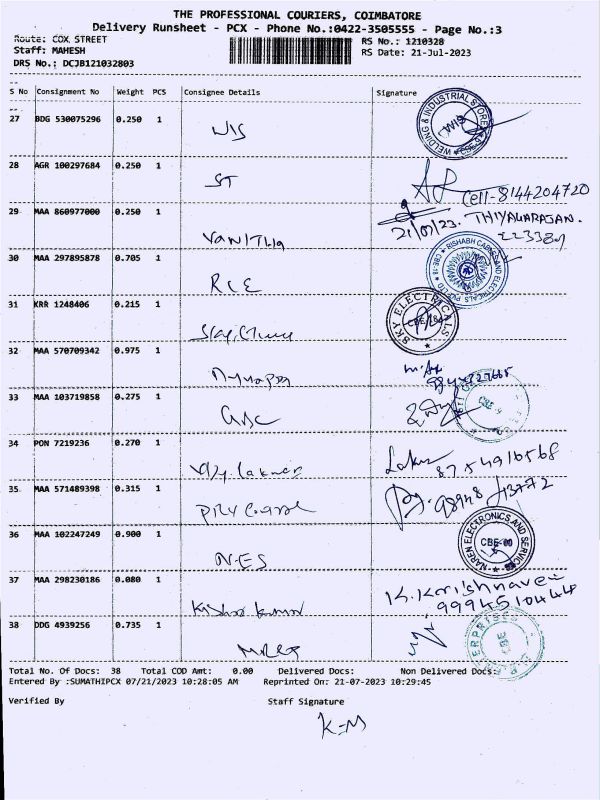 THE PROFESSIONAL COURIERS, COIMBATORE
Delivery Runsheet - PCX - Phone No.:0422-3505555 - Page No.:3
Route: COX STREET RS No.: 1210328
Staff: MAHESH RS Date: 21-Jul-2023
DRS No.: DCJB121032803
S No Consignment No Weight PCS Consignee Details Signature
27 BDG 530075296 0.250 1 WIS WELDING & INDUSTRIAL STORE WIS
28 AGR 100297684 0.250 1 ST
Cell-8144204720
29 MAA 860977000 0.250 1 VANITHA 21/07/23. THIYAGARAJAN.
30 MAA 297895878 0.705 1 RCE RISHABH CABLES AND ELECTRICALS PVT LTD CBE-18
31 KRR 1248406 0.215 1 SKY ELECTRICALS CBE-18
32 MAA 570709342 0.975 1
33 MAA 103719858 0.275 1 GBC
34 PON 7219236 0.270 1 Vijy. Laknar
8754916568
35 MAA 571489398 0.315 1 98948 13772
36 MAA 102247249 0.900 1 NES NAREN ELECTRONICS AND SERVICES
37 MAA 298230186 0.080 1 Kishor kumar K. Krishnaveni
9994510444
38 DDG 4939256 0.735 1 ENTERPRISES CBE
Total No. Of Docs: 38 Total COD Amt: 0.00 Delivered Docs: Non Delivered Docs:
Entered By :SUMATHIPCX 07/21/2023 10:28:05 AM Reprinted On: 21-07-2023 10:29:45
Verified By Staff Signature
K-M